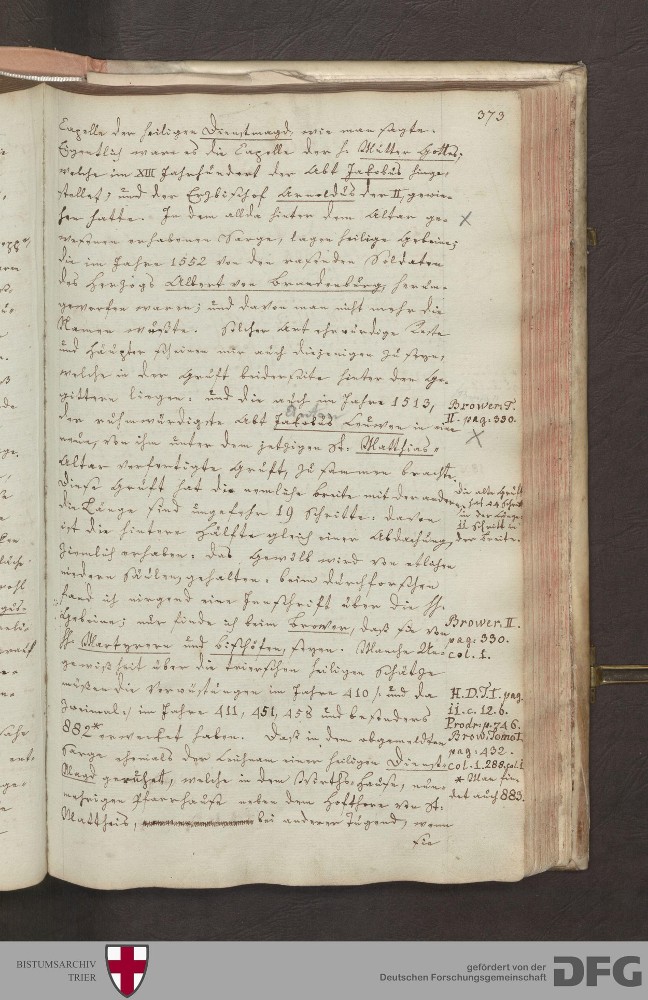 373
Capelle der heiligen Dienstmagd, wie man sagte.
Eigentlich ware es die Capelle der h. Mutter Gottes,
welche im XIII Jahrhundert der Abt Jakobus herge-
stellet; und der Erzbischof Arnoldus der II, gewie-
hen hatte. In dem allda hinter dem Altar ge-
wesenen erhabenen Sarge, lagen heilige Gebeine;
die im Jahre 1552 von den rasenden Soldaten
des Herzogs Albert von Brandenburg,
geworfen waren; und davon man nicht mehr die
Namen wußte. Solcher Art ehrwürdige Reste
und Häupter scheinen mir auch diejenigen zu seyn,
welche in der Gruft beiderseits hinter den Ge-
gittern liegen: und die auch im Jahre 1513,
der ruhmwürdigste Abt Jakobus Leuwen in eine
Antonius
neue, von ihm unter dem jetzigen St. Matthias-
Altar verfertigte Gruft, zusammen brachte.
Diese Gruft hat die nemliche Breite mit der andern,
die Länge sind ungefehr 19 Schritte: davon
ist die hintere Hälfte gleich einer Abdachung,
ziemlich erhaben: das Gewölb wird von etlichen
niedern Säulen, gehalten: beim durchforschen
fand ich nirgend eine Innschrift über die hh.
Gebeine; nur finde ich beim Brower, daß sie von
hh. Martyrern und bischöfen, seyen. Manche Un-
gewißheit über die trierschen heiligen Schätze
müßen die Verwüstungen im Jahre 410 /: und da
zweimal :/ im Jahre 411, 451, 458 und besonders
882* erwecket haben. Daß in dem obgemeldten
Sarge ehemals der Leichnam einer heiligen Dienst-
Magd geruhet, welche in dem Wirths-Hause, nun-
mehrigen Pfarrhause neben dem Hofthore von St.
Mattheis, bei anderer Tugend, wenn
sie
Brower. T.
II. pag. 330.
Die alte Gruft
hat 24 Schritt
in der Länge
11 Schritt in
der breite.
Brower. II.
pag: 330.
col. 1.
H. D. T. I. pag.
ii. c. 12. 6.
Prodr. p. 746.
Brow. Tomo I.
pag: 432.
col. 1. 288. col. i
* Man fin-
det auch 883.
BISTUMSARCHIV
TRIER
gefördert von der
Deutschen Forschungsgemeinschaft
DFG